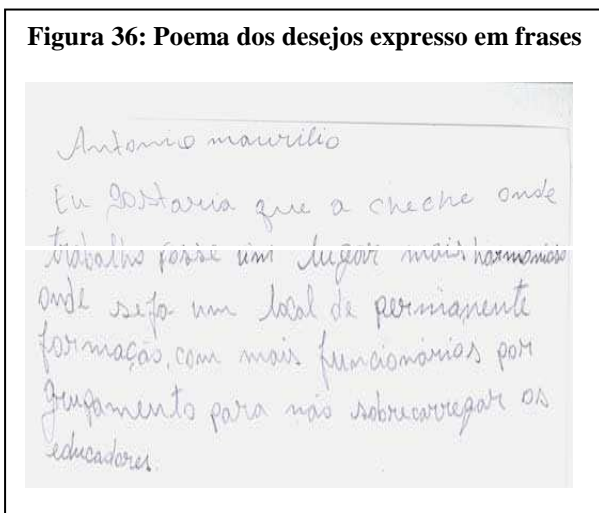 Figura 36: Poema dos desejos expresso em frases
Antonio maurilio
Eu gostaria que a cheche onde
trabalho fosse um lugar mais harmonioso
onde seja um local de permanente
formação, com mais funcionários por
grupamento para não sobrecarregar os
educadores.